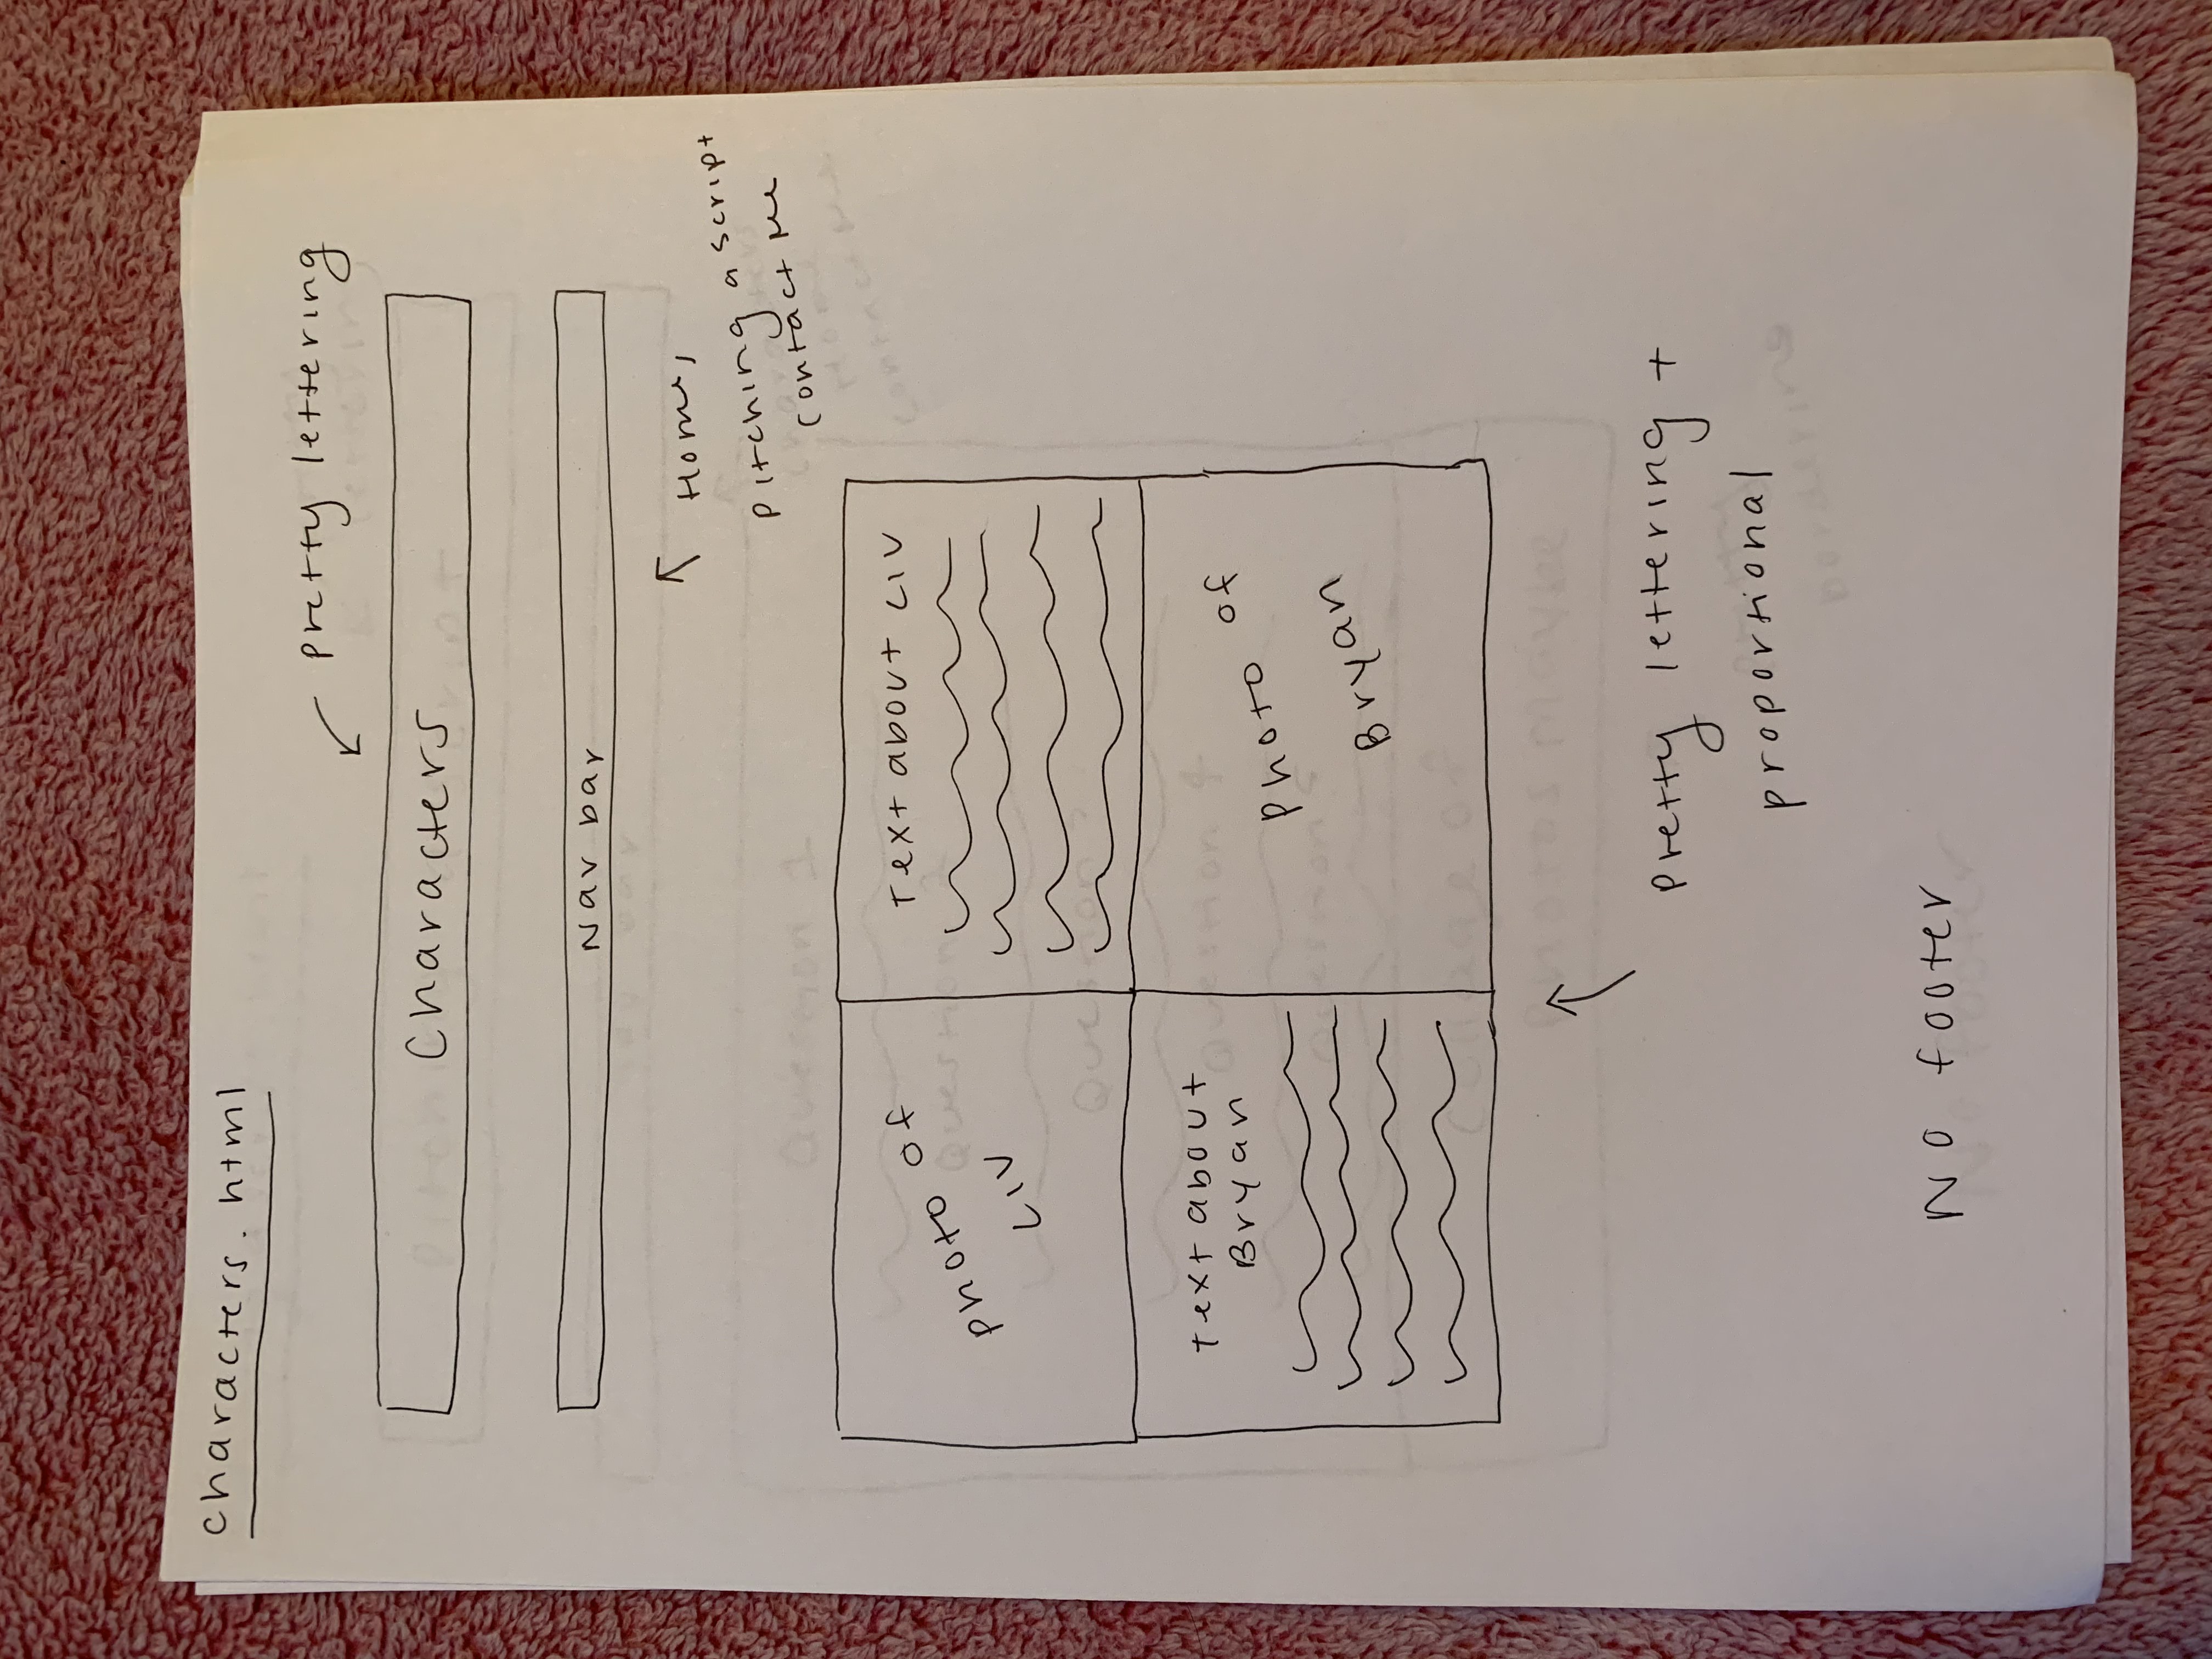 characters.html
pretty lettering
Characters
Nav bar
Home,
Pitching a script
contact me
photo of
LIV
Text about LIV
Text about
Bryan
Photo of
Bryan
Pretty lettering +
proportional
No footer